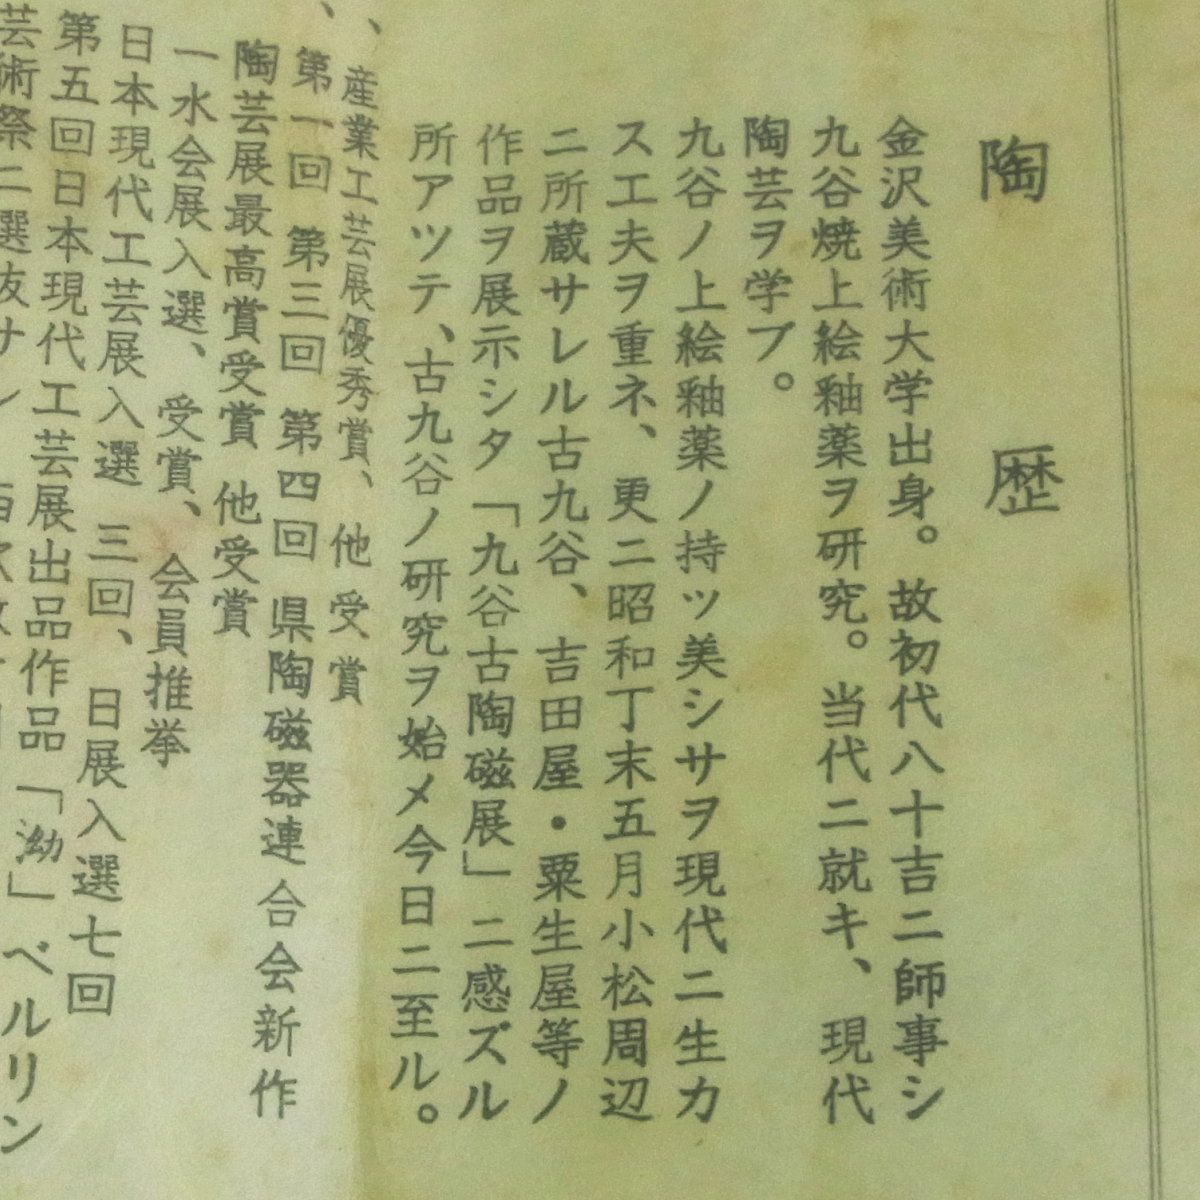 陶歴
金沢美術大学出身。故初代八十吉ニ師事シ
九谷焼上絵釉薬ヲ研究。当代ニ就キ、現代
陶芸ヲ学ブ。
九谷ノ上絵釉薬ノ持ツ美シサヲ現代ニ生カ
ス工夫ヲ重ネ、更ニ昭和丁末五月小松周辺
ニ所蔵サレル古九谷、吉田屋・粟生屋等ノ
作品ヲ展示シタ「九谷古陶磁展」ニ感ズル
所アツテ、古九谷ノ研究ヲ始メ今日ニ至ル。
、産業工芸展優秀賞、他受賞
、第一回 第三回 第四回 県陶磁器連合会新作
陶芸展最高賞受賞 他受賞
一水会展入選、受賞、会員推挙
日本現代工芸展入選 三回、日展入選七回
第五回日本現代工芸展出品作品「泑」ベルリン
芸術祭ニ選抜サレ